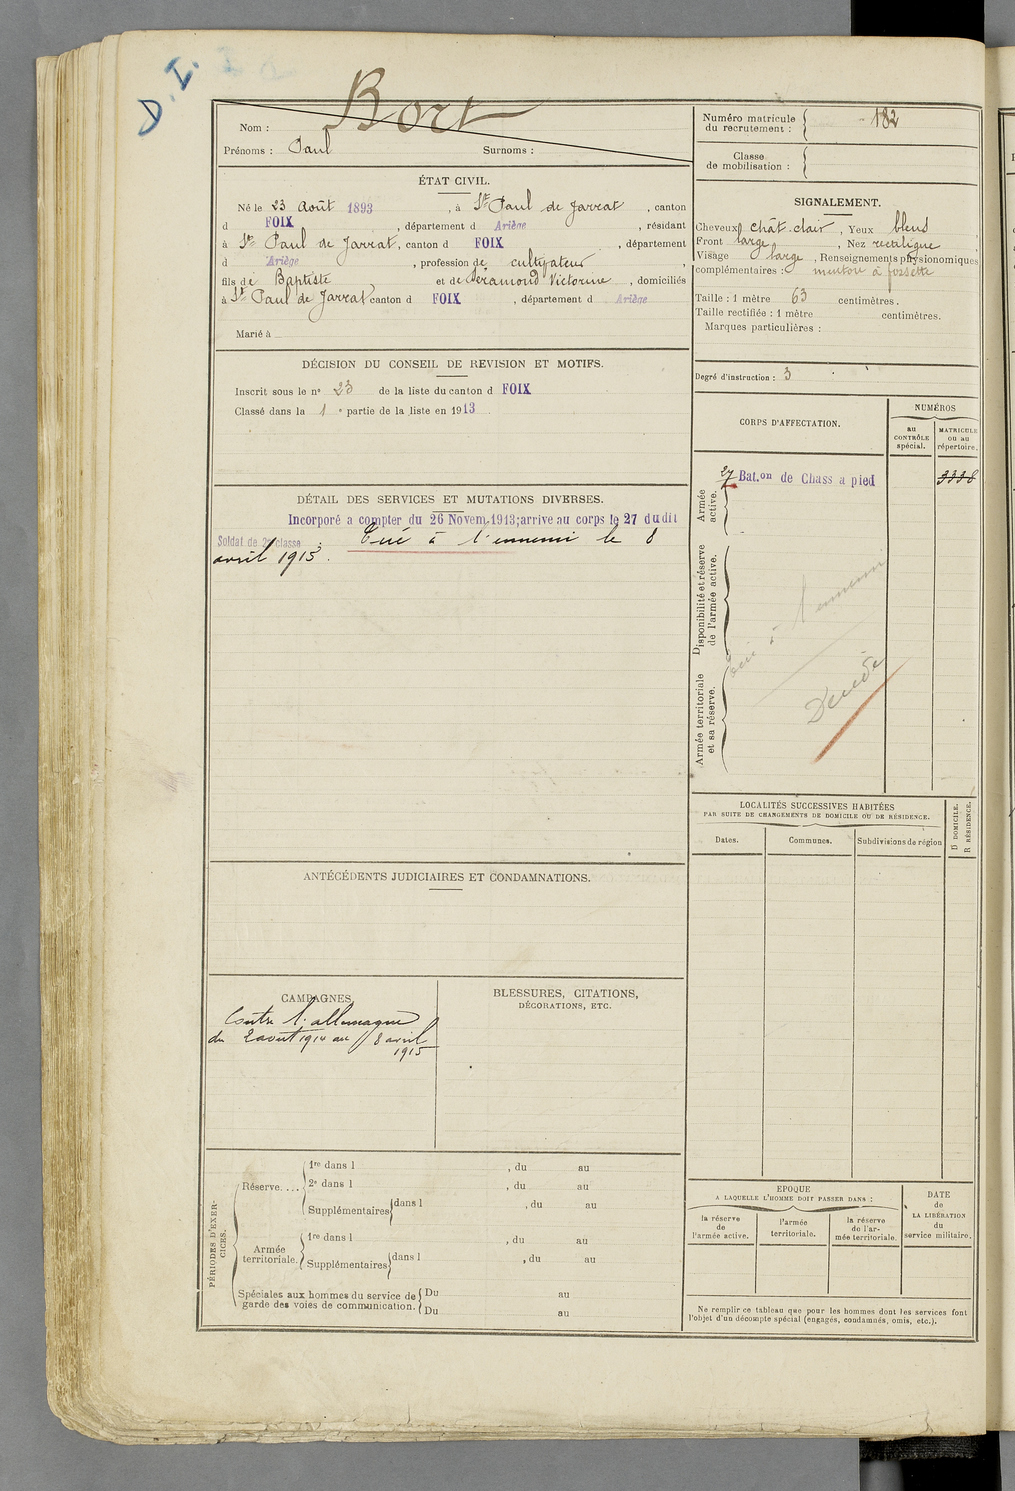 D.I.
Bort
Nom :
Prénoms : Paul Surnoms :
ÉTAT CIVIL.
Né le 23 Août 1893, à St Paul de Jarrat, canton
d FOIX, département d Ariège, résidant
à St Paul de Jarrat, canton d FOIX, département
d Ariège, profession de cultivateur,
fils de Baptiste et de Séramond Victorine, domiciliés
à St Paul de Jarrat canton d FOIX, département d Ariège
Marié à
DÉCISION DU CONSEIL DE REVISION ET MOTIFS.
Inscrit sous le no 23 de la liste du canton d FOIX
Classé dans la 1e partie de la liste en 1913.
DÉTAIL DES SERVICES ET MUTATIONS DIVERSES.
Incorporé a compter du 26 Novem. 1913; arrive au corps le 27 dudit
Soldat de 2e classe. Tué à l'ennemi le 8
avril 1915.
ANTÉCÉDENTS JUDICIAIRES ET CONDAMNATIONS.
CAMPAGNES
Contre l'allemagne
du 2 août 1914 au 8 avril
1915
BLESSURES, CITATIONS,
DÉCORATIONS, ETC.
PÉRIODES D'EXERCICES.
Réserve....
1re dans l , du au
2e dans l , du au
Supplémentaires dans l , du au
Armée
territoriale.
1re dans l , du au
Supplémentaires dans l , du au
Spéciales aux hommes du service de
garde des voies de communication.
Du au
Du au
Numéro matricule
du recrutement : 182
Classe
de mobilisation :
SIGNALEMENT.
Cheveux chât. clair, Yeux bleus
Front large, Nez rectiligne,
Visage large, Renseignements physionomiques
complémentaires : menton à fossette
Taille : 1 mètre 63 centimètres.
Taille rectifiée : 1 mètre centimètres.
Marques particulières :
Degré d'instruction : 3
CORPS D'AFFECTATION.
NUMÉROS
au
CONTRÔLE
spécial.
MATRICULE
ou au
répertoire.
Armée
active.
27 Bat.on de Chass a pied 3338
Disponibilité et réserve
de l'armée active.
Tué à l'ennemi
Décédé
Armée territoriale
et sa réserve.
LOCALITÉS SUCCESSIVES HABITÉES
PAR SUITE DE CHANGEMENTS DE DOMICILE OU DE RÉSIDENCE.
Dates.
Communes.
Subdivisions de région
D DOMICILE.
R RÉSIDENCE.
EPOQUE
A LAQUELLE L'HOMME DOIT PASSER DANS :
la réserve
de
l'armée active.
l'armée
territoriale.
la réserve
de l'ar-
mée territoriale.
DATE
de
LA LIBÉRATION
du
service militaire.
Ne remplir ce tableau que pour les hommes dont les services font
l'objet d'un décompte spécial (engagés, condamnés, omis, etc.).